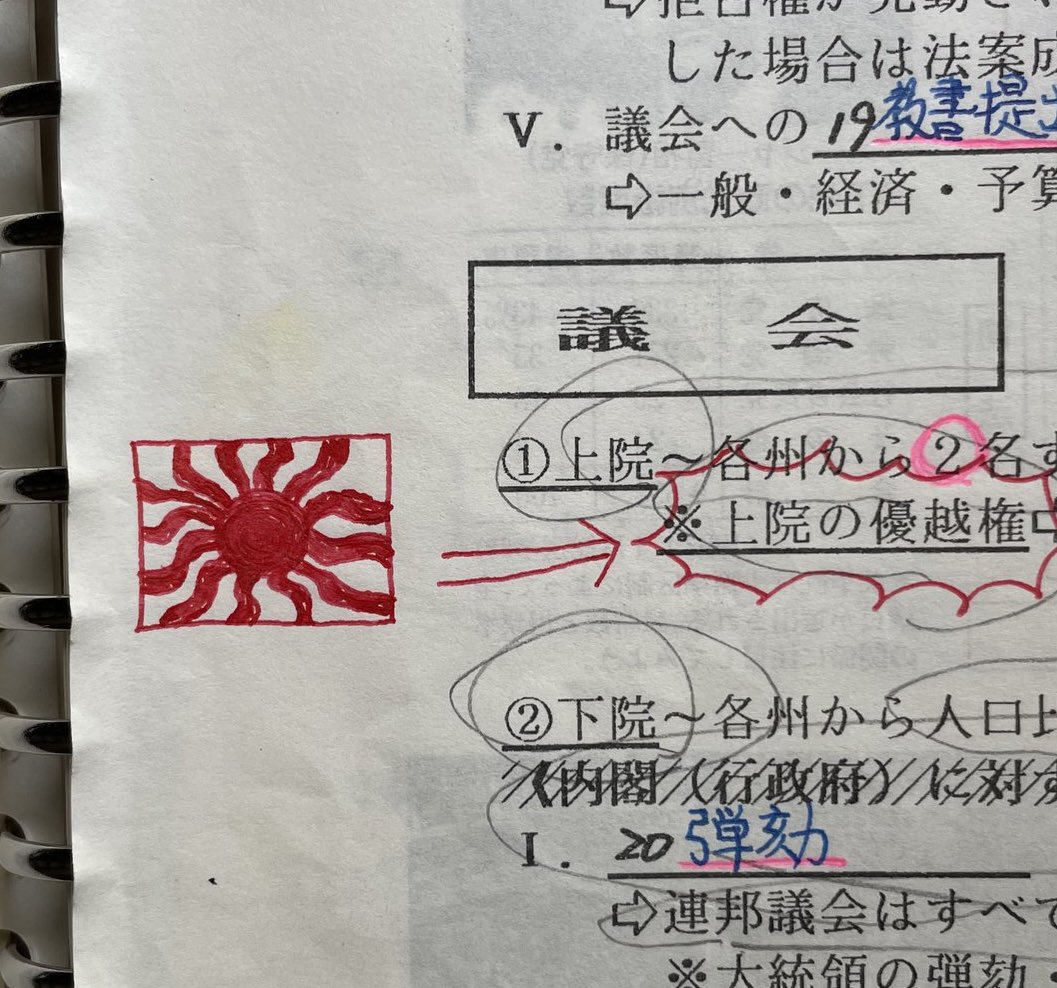 した場合は法案成
Ⅴ．議会への19教書提出
⇨一般・経済・予算
議会
①上院～各州から2名ず
※上院の優越権⇨
②下院～各州から人口比
（内閣（行政府）に対す
Ⅰ．20弾劾
⇨連邦議会はすべて
※大統領の弾劾・